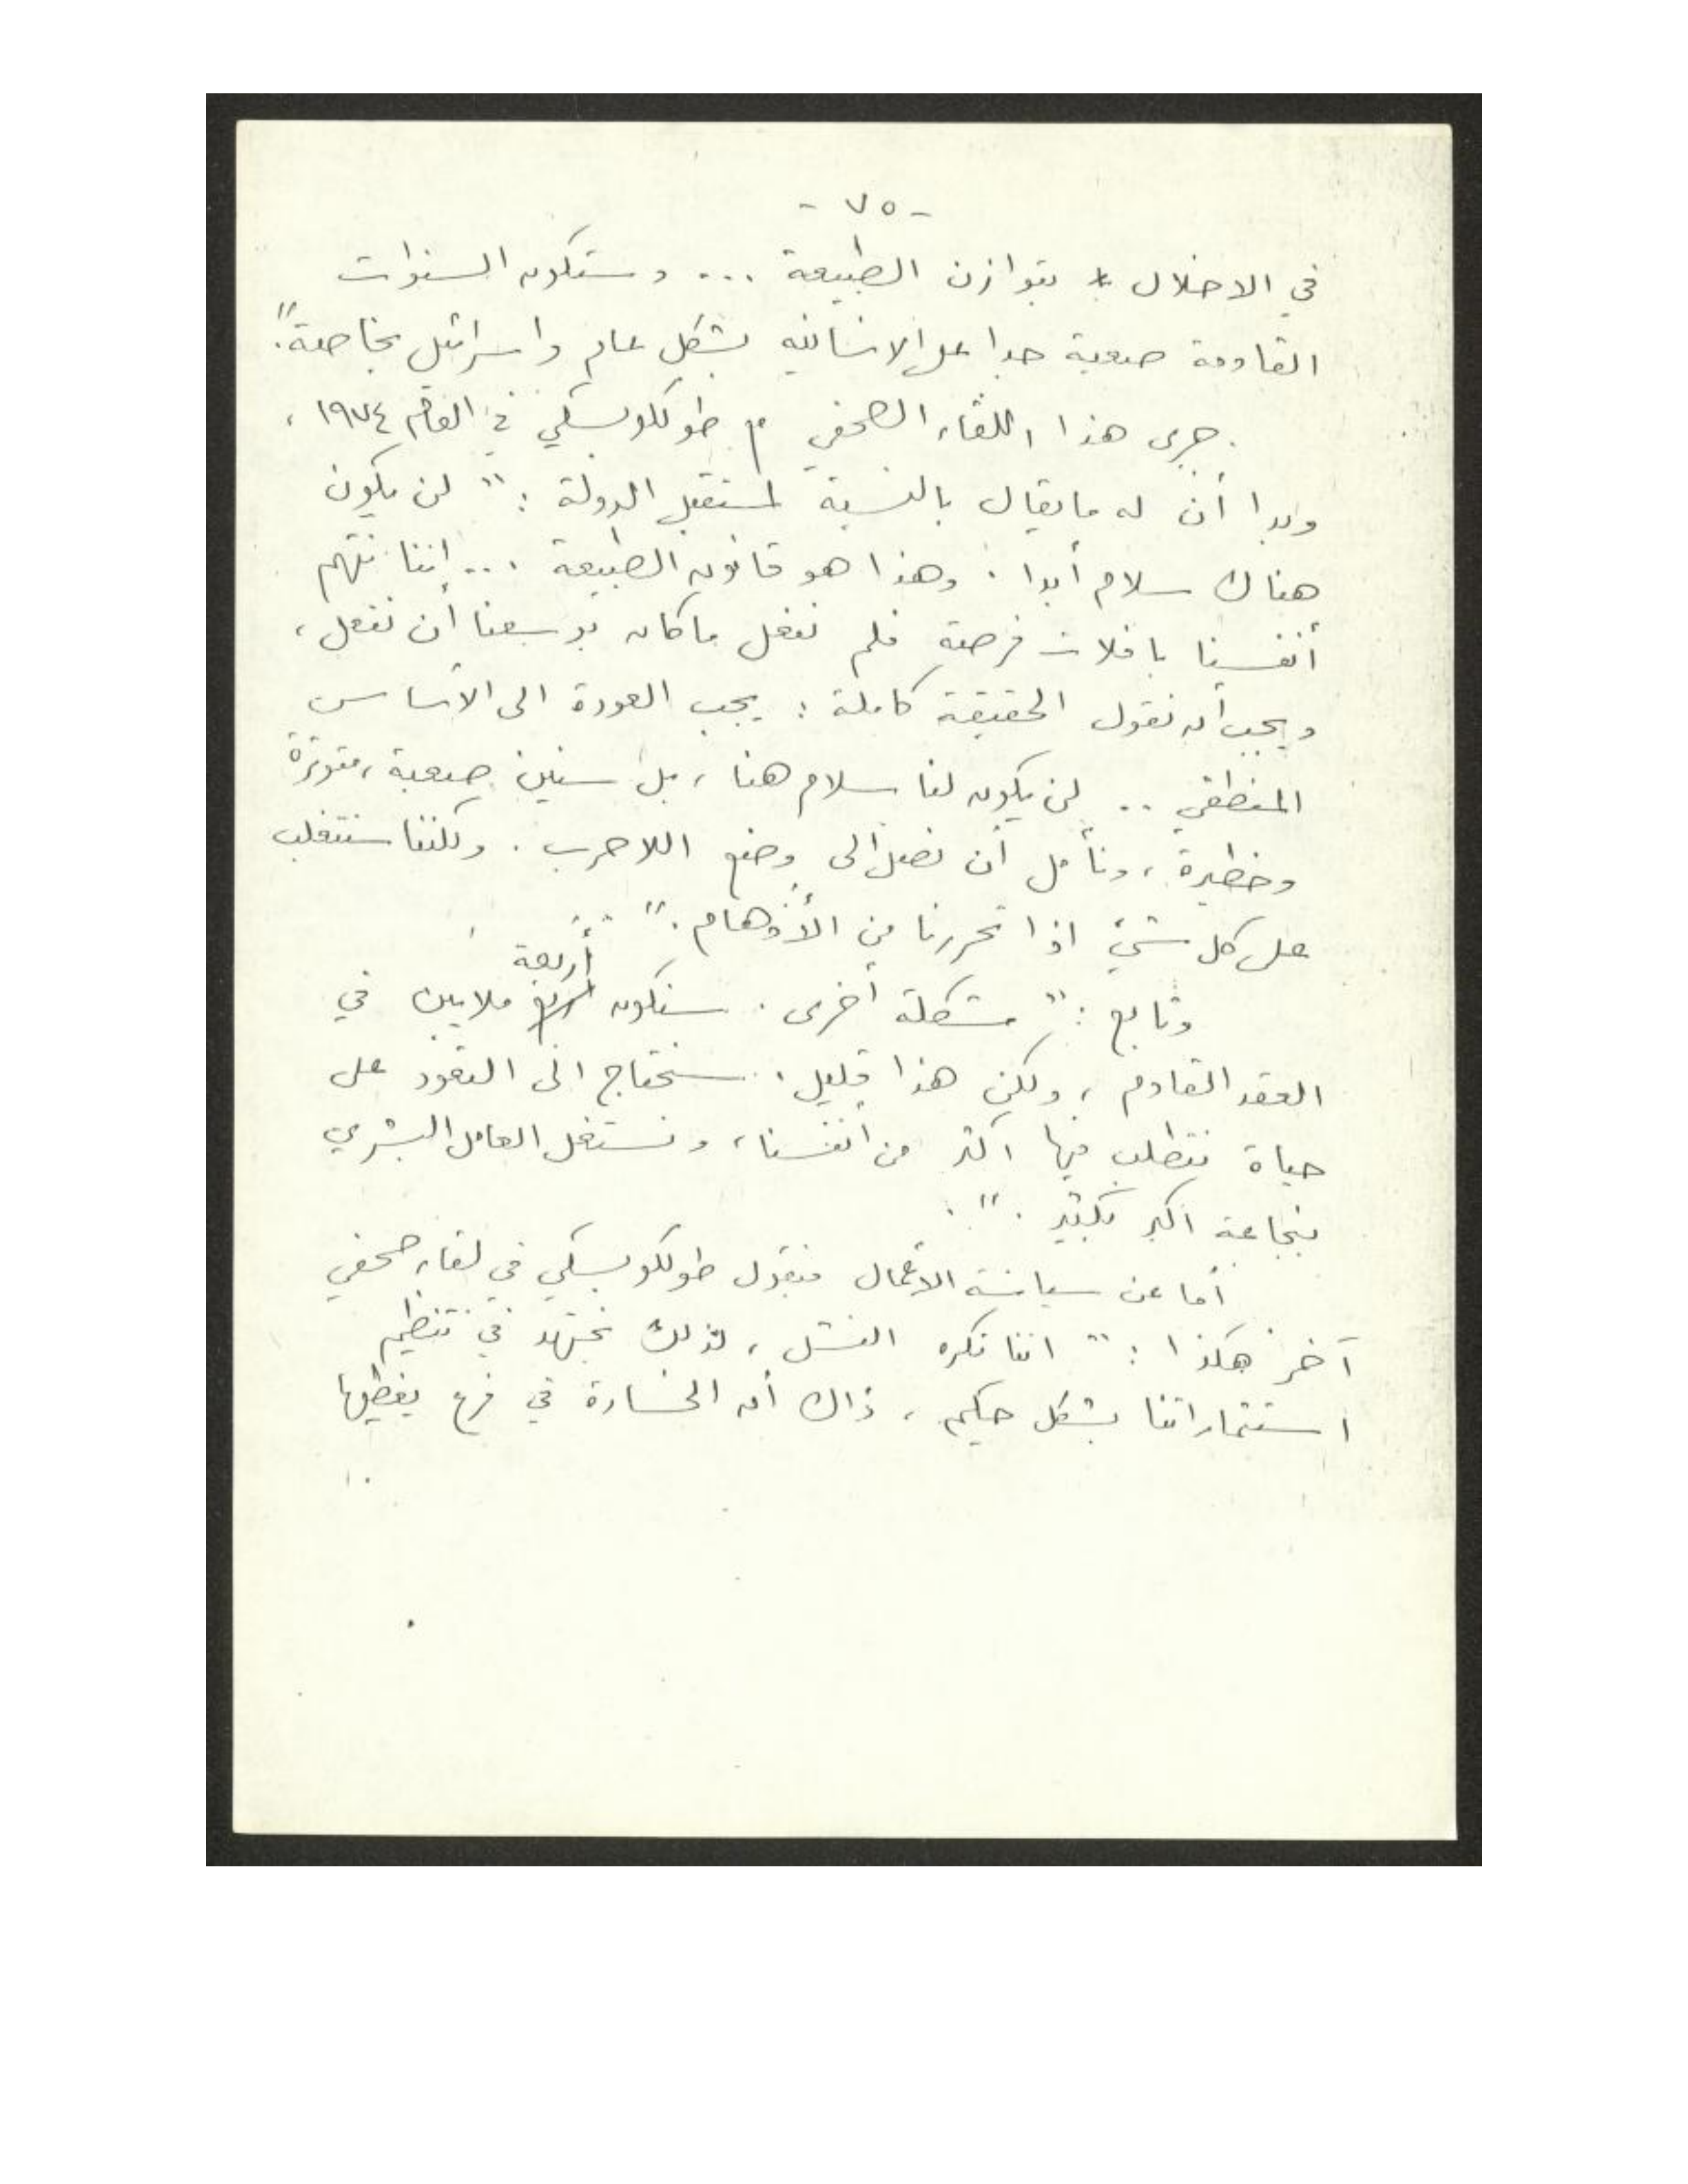 - ٧٥ -
في الاخلال بتوازن الطبيعة ... وستكون السنوات
القادمة صعبة جدا على الانسانية بشكل عام واسرائيل بخاصة".
جرى هذا اللقاء الصحفي مع طولكوبسكي في العام ١٩٧٤،
وبدا أن له ما يقال بالنسبة لمستقبل الدولة : " لن يكون
هناك سلام أبدا . وهذا هو قانون الطبيعة ... إننا نتهم
أنفسنا بافلات فرصة فلم نفعل ما كان بوسعنا أن نفعل ،
ويجب أن نقول الحقيقة كاملة : يجب العودة الى الأساس
المنطقي .. لن يكون لنا سلام هنا ، بل سنين صعبة ، متوترة
وخطيرة ، ونأمل أن نصل الى وضع اللاحرب . ولكننا سنتغلب
على كل شيء اذا تحررنا من الأوهام . "
أربعة
وتابع : " مشكلة أخرى . سنكون ملايين في
العقد القادم ، ولكن هذا قليل . سنحتاج الى التعود على
حياة نتطلب فيها اكثر من أنفسنا ، ونستغل العامل البشري
بنجاعة اكبر بكثير . " .
أما عن سياسة الاعمال فيقول طولكوبسكي في لقاء صحفي
آخر هكذا : " اننا نكره الفشل ، لذلك نجتهد في تنظيم
استثماراتنا بشكل حكيم ، ذاك أن الخسارة في فرع يغطيها